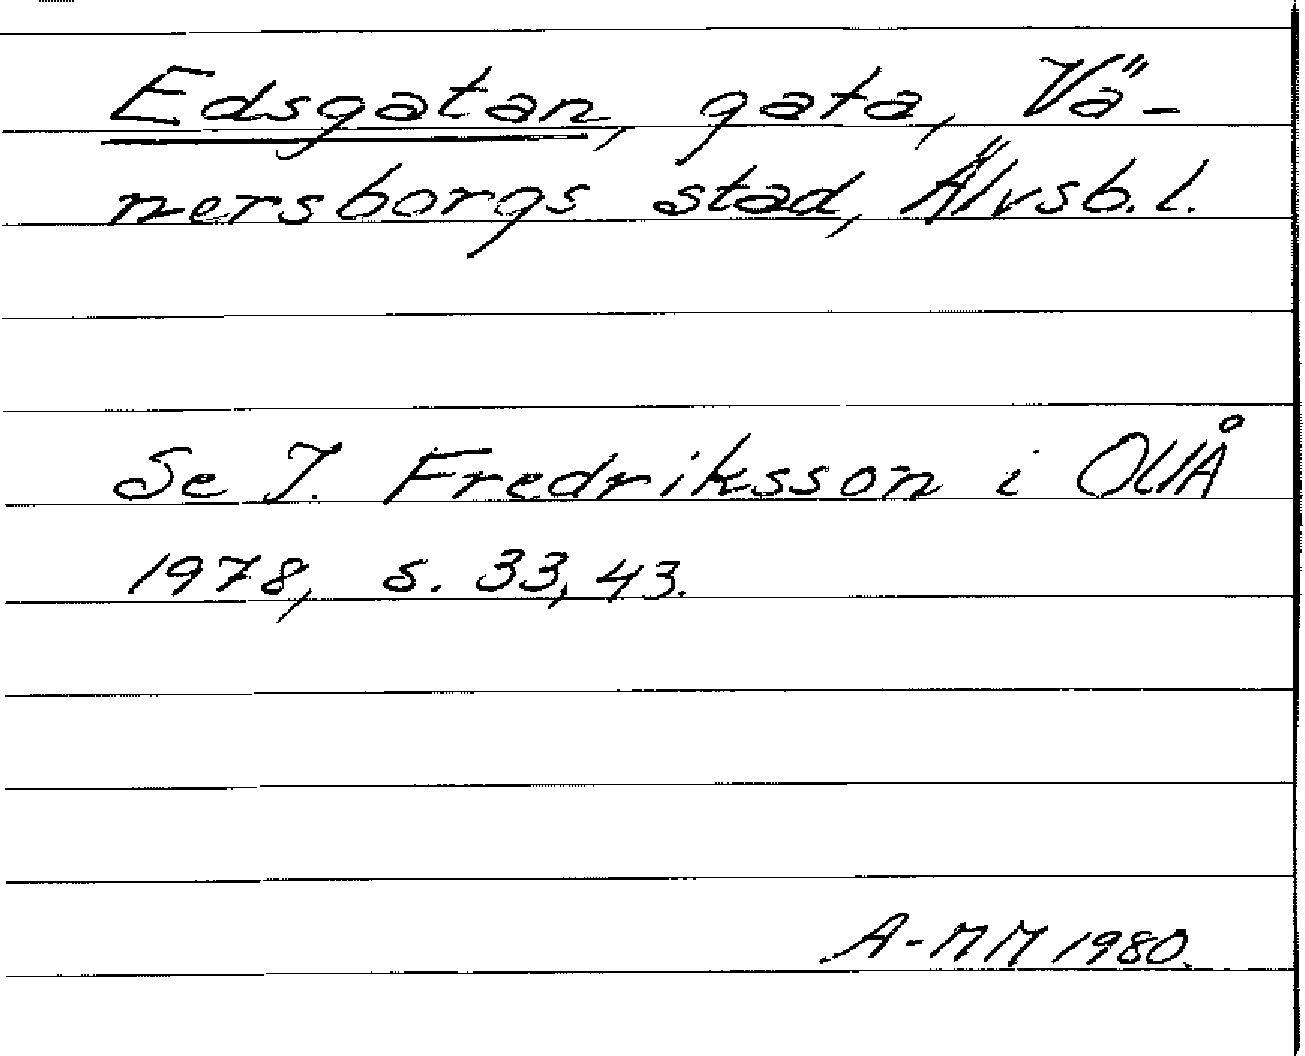 Edsgatan, gata, Vä-
nersborgs stad, Älvsb. l.
Se I. Fredriksson i OUÅ
1978, s. 33, 43.
A-MM 1980.